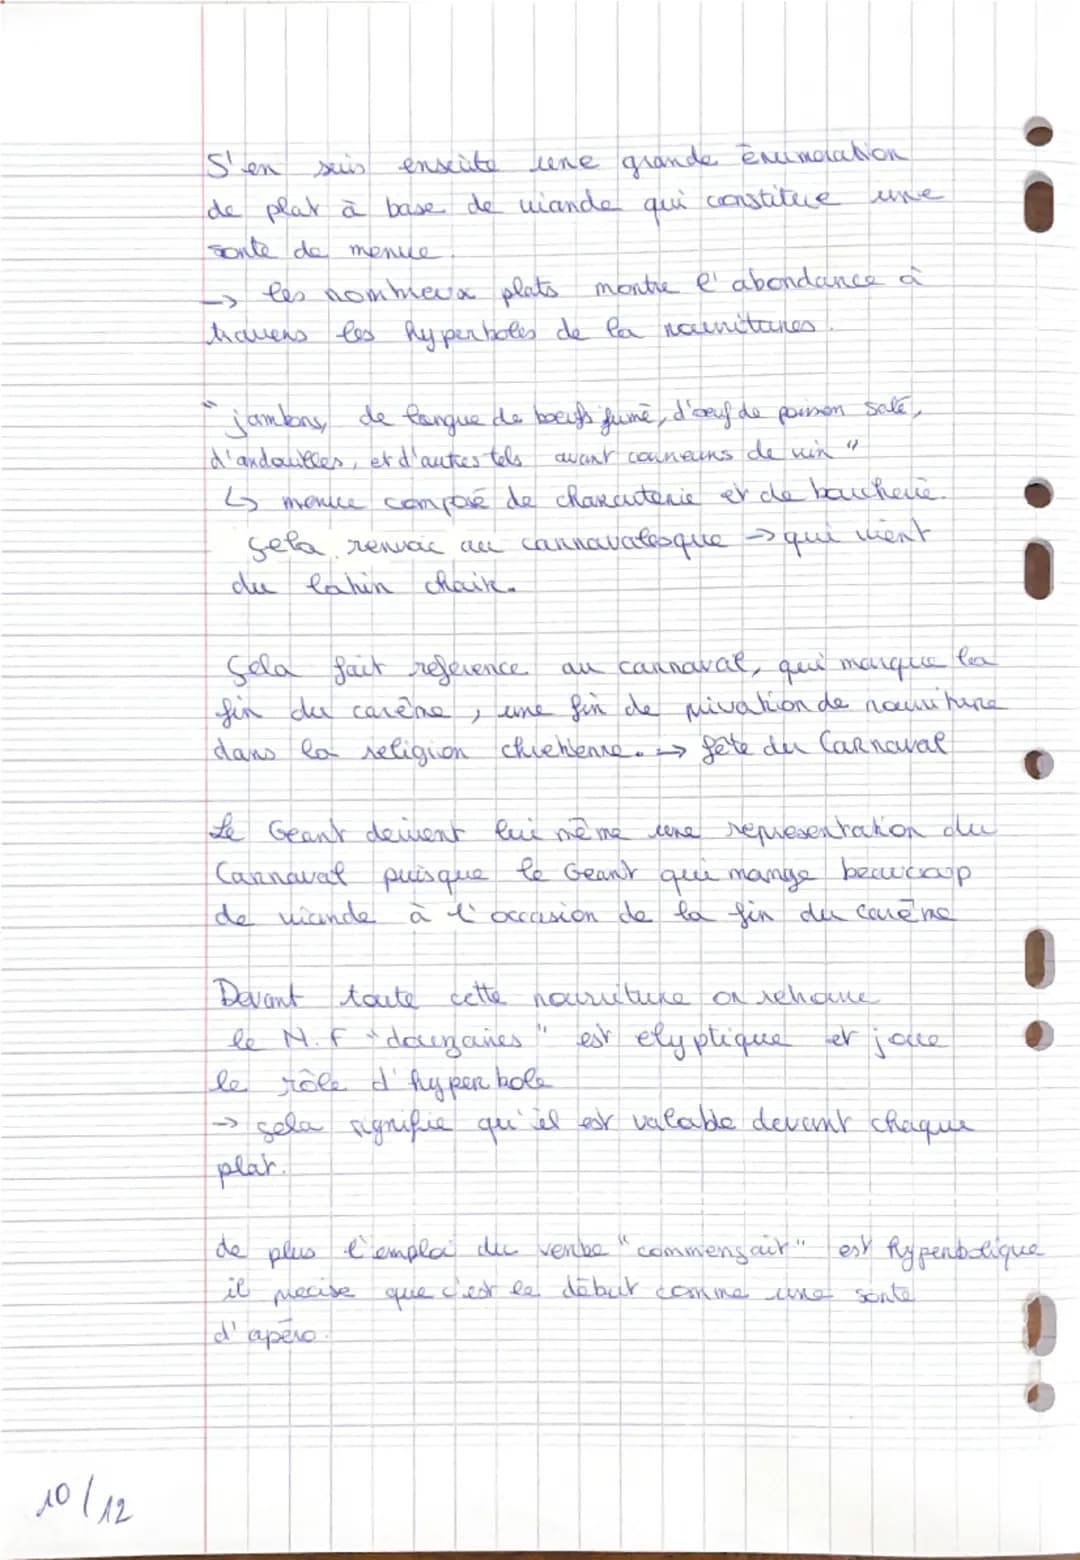 S'en suis ensuite une grande énumération
de plat à base de viande qui constitue une
sorte de menue.
-> les nombreux plats montre l'abondance à
travers les hyperboles de la nourritures.
"jambons, de langue de boeufs fumé, d'oeuf de poisson salé,
d'andouilles, et d'autres tels avant coureurs de vin"
↳ menue composé de charcuterie et de boucherie.
Çela renvoie au carnavalesque -> qui vient
du latin chair.
Çela fait reference au carnaval, qui marque la
fin du carême, une fin de privation de nourriture
dans la religion chretienne. -> fête du Carnaval
Le Geant devient lui même une representation du
Carnaval puisque le Geant qui mange beaucoup
de viande à l'occasion de la fin du carême
Devant toute cette nourriture on retrouve
le N.F "douzaines" est elyptique et joue
le rôle d'hyperbole
-> çela signifie qu'il est valable devant chaque
plat.
de plus l'emploi du verbe "commençait" est hyperbolique
il precise que c'est le début comme une sorte
d'apéro.
10/12